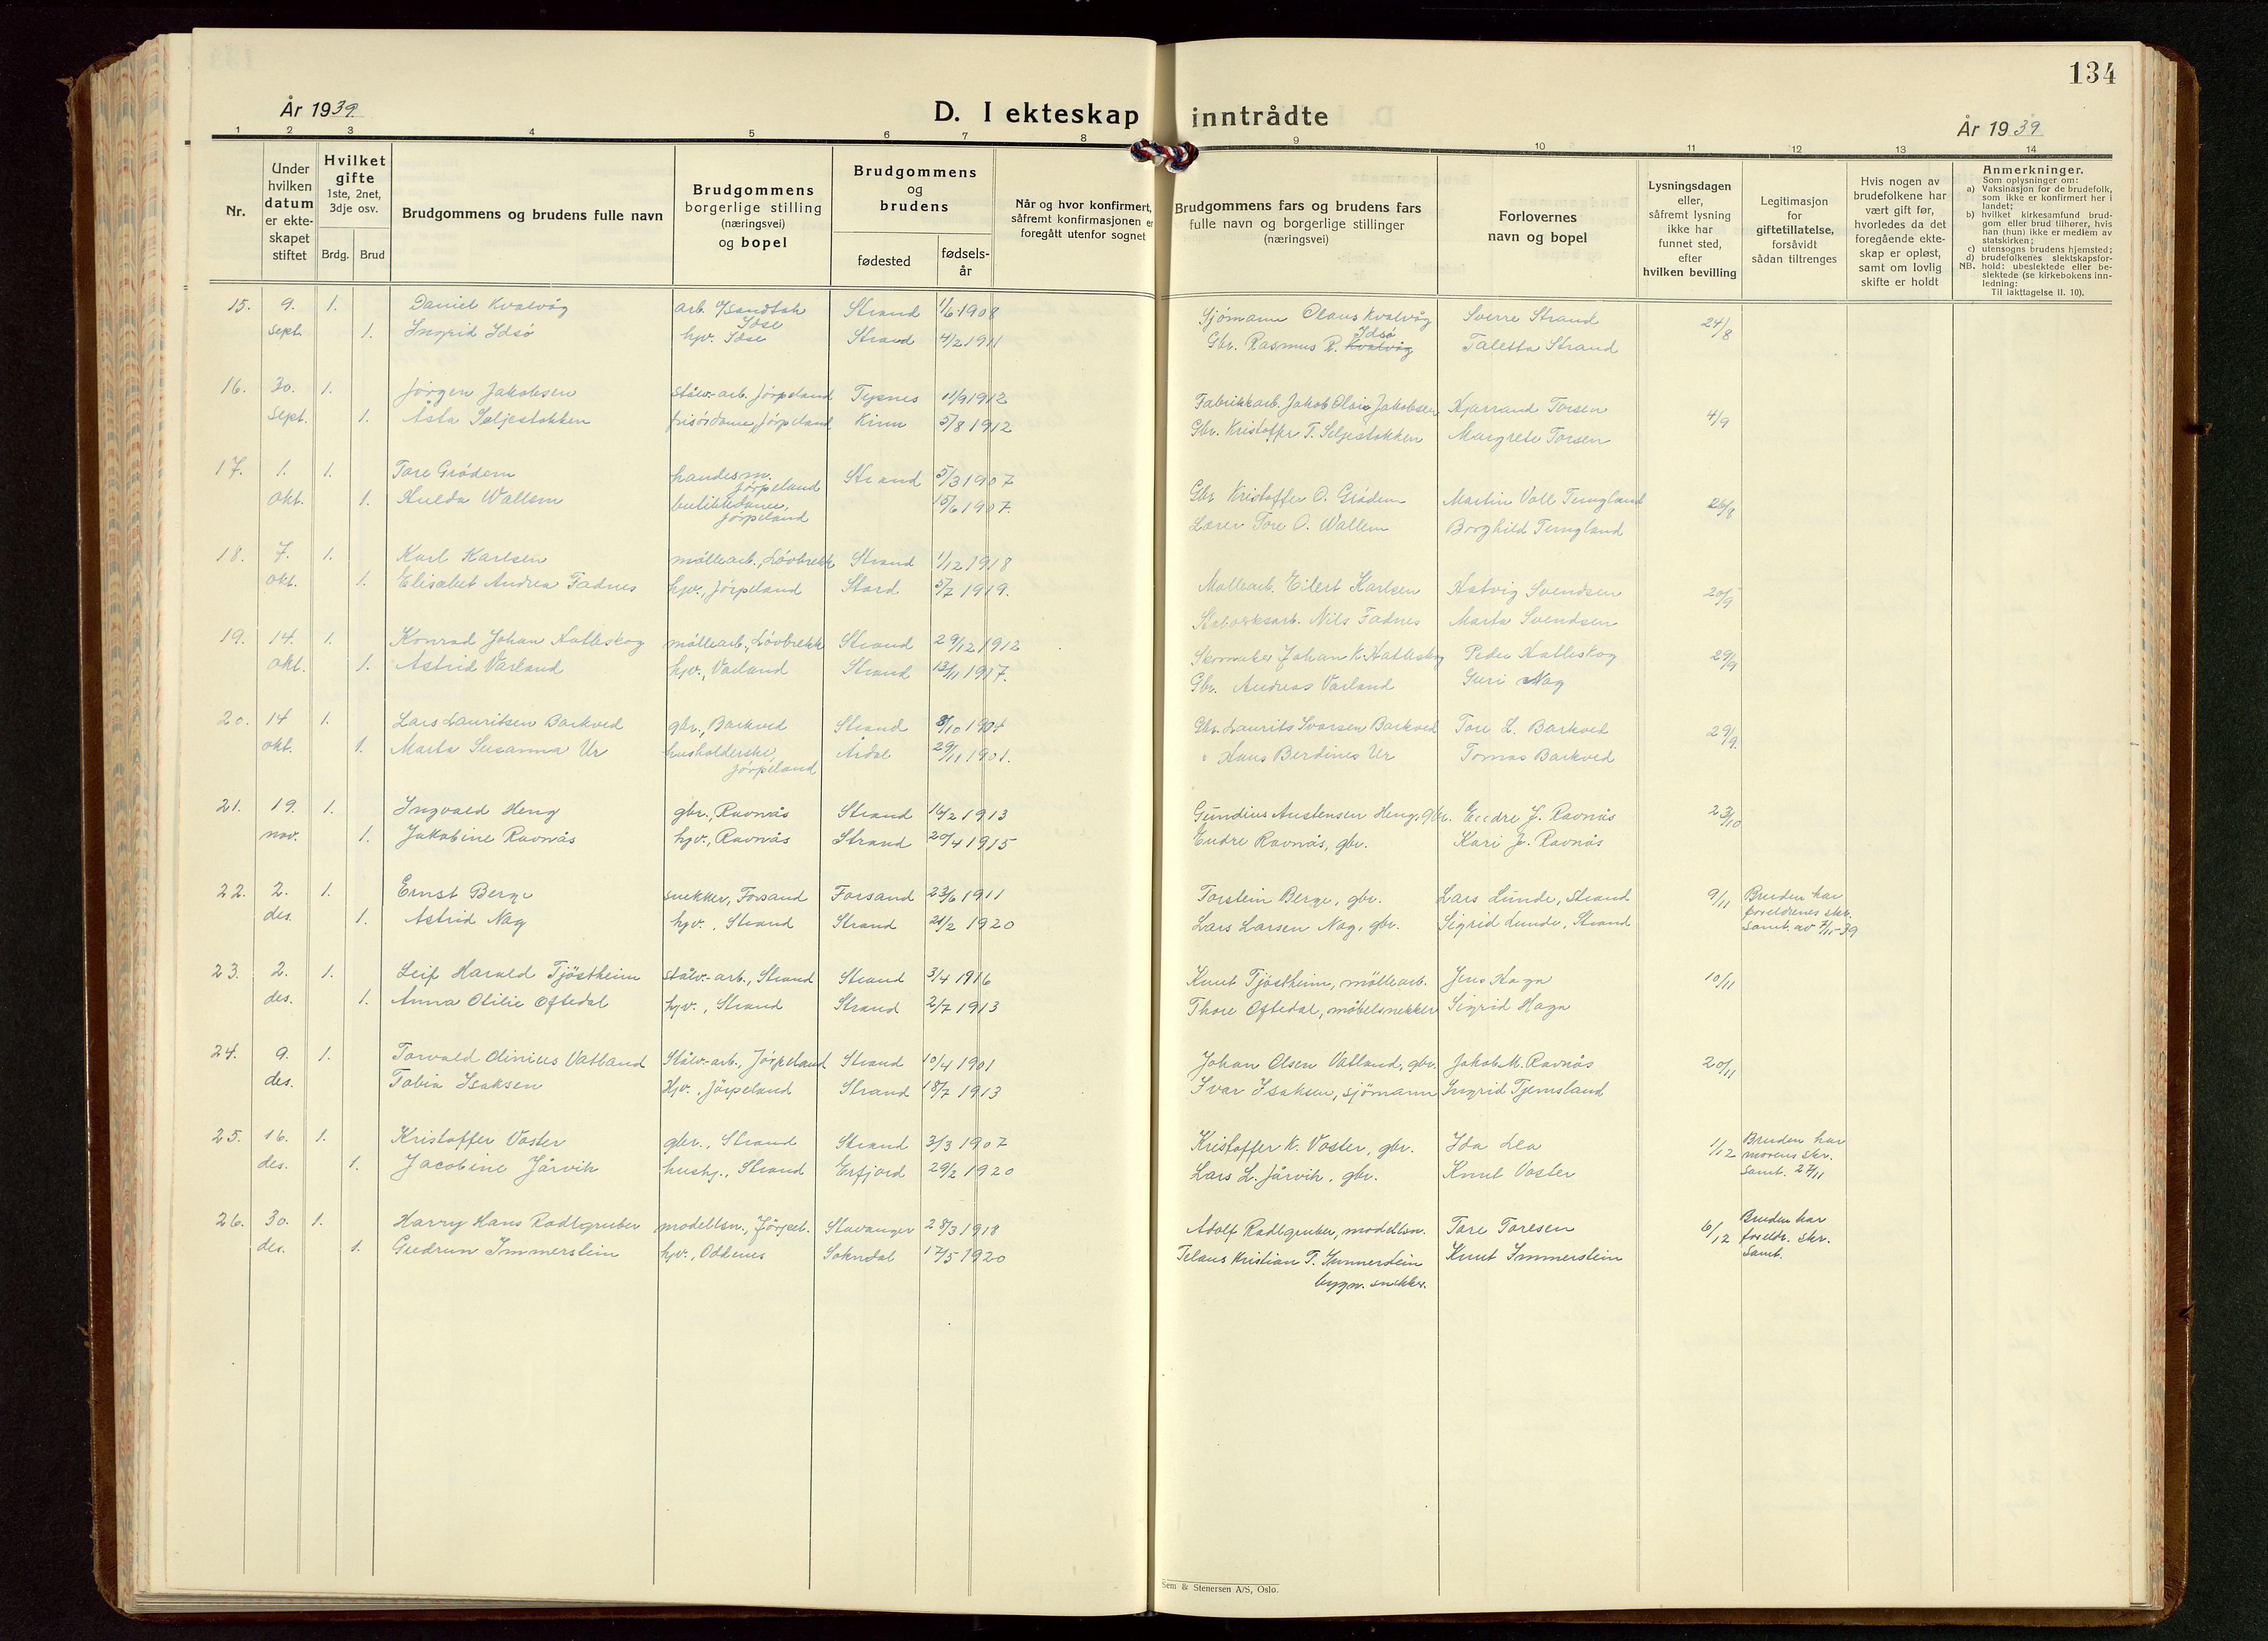 134
År 1939
D. I ekteskap inntrådte
År 1939
1 2 3 4 5 6 7 8 9 10 11 12 13 14
Nr.
Under hvilken datum er ekteskapet stiftet
Hvilket gifte
1ste, 2net, 3dje osv.
Brdg. Brud
Brudgommens og brudens fulle navn
Brudgommens borgerlige stilling (næringsvei) og bopel
Brudgommens og brudens
fødested
fødselsår
Når og hvor konfirmert, såfremt konfirmasjonen er foregått utenfor sognet
Brudgommens fars og brudens fars fulle navn og borgerlige stillinger (næringsvei)
Forlovernes navn og bopel
Lysningsdagen eller, såfremt lysning ikke har funnet sted, efter hvilken bevilling
Legitimasjon for giftetillatelse, forsåvidt sådan tiltrenges
Hvis nogen av brudefolkene har vært gift før, hvorledes da det foregående ekteskap er opløst, samt om lovlig skifte er holdt
Anmerkninger.
Som oplysninger om:
a) Vaksinasjon for de brudefolk, som ikke er konfirmert her i landet;
b) hvilket kirkesamfund brudgom eller brud tilhører, hvis han (hun) ikke er medlem av statskirken;
c) utensogns brudens hjemsted;
d) brudefolkenes slektskapsforhold: ubeslektede eller beslektede (se kirkebokens innledning:
NB. Til iakttagelse II. 10).
15. 9. 1. Daniel Kvalvåg arb. Strand 1/6 1908 Sjömann Olaus Kvalvåg Sverre Strand 24/8
sept. 1. Ingrid Idsö hjv. Idse Strand 4/2 1911 Gbr. Rasmus R. Kvalvåg Idsö Taletta Strand
16. 30. 1. Jörgen Jakobsen stålv.-arb. Jörpeland 11/9 1912 Fabrikkarb. Jakob Jakobsen Hjarrand Torsen 4/9
sept. 1. Åsta Seljestokken frisördame, Jörpeland Kinn 5/8 1912 Gbr. Kristoffer T. Seljestokken Margrete Torsen
17. 1. 1. Tore Grödem handesm. Jörpeland Strand 5/3 1907 Gbr. Kristoffer O. Grödem Martin Voll 26/8
okt. 1. Hulda Wallem butikkdame, Jörpeland 15/6 1907. Lærer Tore O. Wallem Borghild
18. 7. 1. Karl Karlsen möllearb., Lövbrekk Strand 1/12 1918 Möllearb. Eilert Karlsen Hatvig Svendsen 20/9
okt. 1. Elisabet Andrea Fadnes hjv., Jörpeland Stord 5/7 1919. Nils Fadnes Marta Svendsen
19. 14. 1. Konrad Johan Hatleskog möllearb., Lövbrekk Strand 29/12 1912 Skomaker Johan K. Hatleskog Peder Hatleskog 29/9
okt. 1. Astrid Varland hjv., Varland Strand 13/11 1917. Gbr. Andreas Varland Guri Nag
20. 14 1. Lars Lauritsen Barkved gbr., Barkved Strand 8/10 1904 Gbr. Laurits Ivarsen Barkved Tore L. Barkved 29/9.
okt. 1. Marta Susanna Ur husholderske, Jörpeland Årdal 29/11 1901. " Hans Berdines Ur Tomas Barkved
21. 19. 1. Ingvald Heng gbr., Ravnås Strand 16/2 1913 Gundius Austensen Heng, gbr. Endre J. Ravnås 23/10
nov. 1. Jakobine Ravnås hjv., Ravnås Strand 20/4 1915 Endre Ravnås, gbr. Kari J. Ravnås
22. 2. 1. Ernst Berge snekker, Forsand Forsand 23/6 1911 Torstein Berge, gbr. Lars Lunde, Strand 9/11 Bruden har foreldrenes skr. samt. av 7/11-39
des. 1. Astrid Nag hjv., Strand Strand 21/2 1920 Lars Larsen Nag, gbr. Sigrid Lunde, Strand
23. 2. 1. Leif Harald Tjöstheim stålv.-arb., Strand Strand 3/4 1916 Knut Tjöstheim, möllearb. Jens Haga 10/11
des. 1. Anna Otilie Oftedal hjv., Strand Strand 2/7 1913 Thore Oftedal, möbelsnekker Sigrid Haga
24. 9. 1. Torvald Olinius Vatland Stålv.-arb., Jörpeland Strand 10/4 1901 Johan Olsen Vatland, gbr. Jakob M. Ravnås 20/11
des. Tobia Isaksen Hjv., Jörpeland Strand 18/7 1913 Ivar Isaksen, sjömann Ingrid Tjemsland
25. 16. 1. Kristoffer Voster gbr., Strand Strand 3/3 1907 Kristoffer K. Voster, gbr. Ida Lea 1/12 Bruden har morens skr. samt. 27/11
des. 1. Jacobine Jårvik hushj., Strand Erfjord 29/2 1920 Lars L. Jårvik, gbr. Knut Voster
26. 30. 1. Harry Hans Radlgruber modellsn., Jörpel. Stavanger 28/3 1918 Adolf Radlgruber, modellsn. Tore Toresen 6/12 Bruden har foreldr. skr. samt.
des. 1. Gudrun Immerstein hjv., Oddenes Sokndal 17/5 1920 Telaus Kristian T. Immerstein Knut Immerstein
bygn. snekker.
Sem & Stenersen A/S, Oslo.